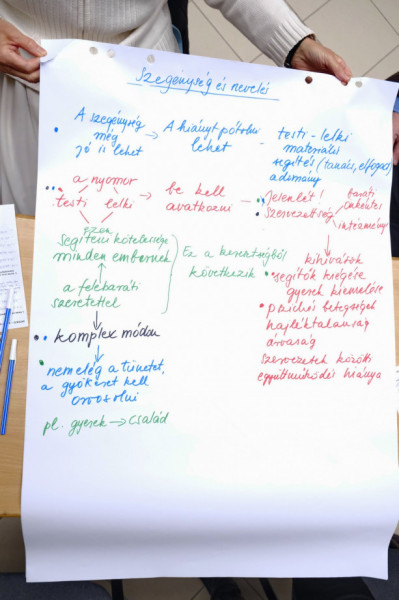 Szegénység és nevelés
A szegénység
még
jó is lehet
→ A hiányt pótolni
lehet
- testi-lelki
materiális
segítés (tanács, elfogad
adomány
a nyomor
testi lelki
→ be kell
avatkozni
- jelenlét!
szervezettség
baráti
önkéntes
intézmény
ezen
segíteni kötelessége
minden embernek
a felebaráti
szeretettel
Ez a keresztségből
következik
→ komplex módon
→ nemcsak a tünetet,
a gyökeret kell
orvosolni
pl. gyerek → család
kihívások
segítők kiégése
gyerek kiemelése
pszichés betegségek
hajléktalanság
árvaság
szervezetek közötti
együttműködés hiánya